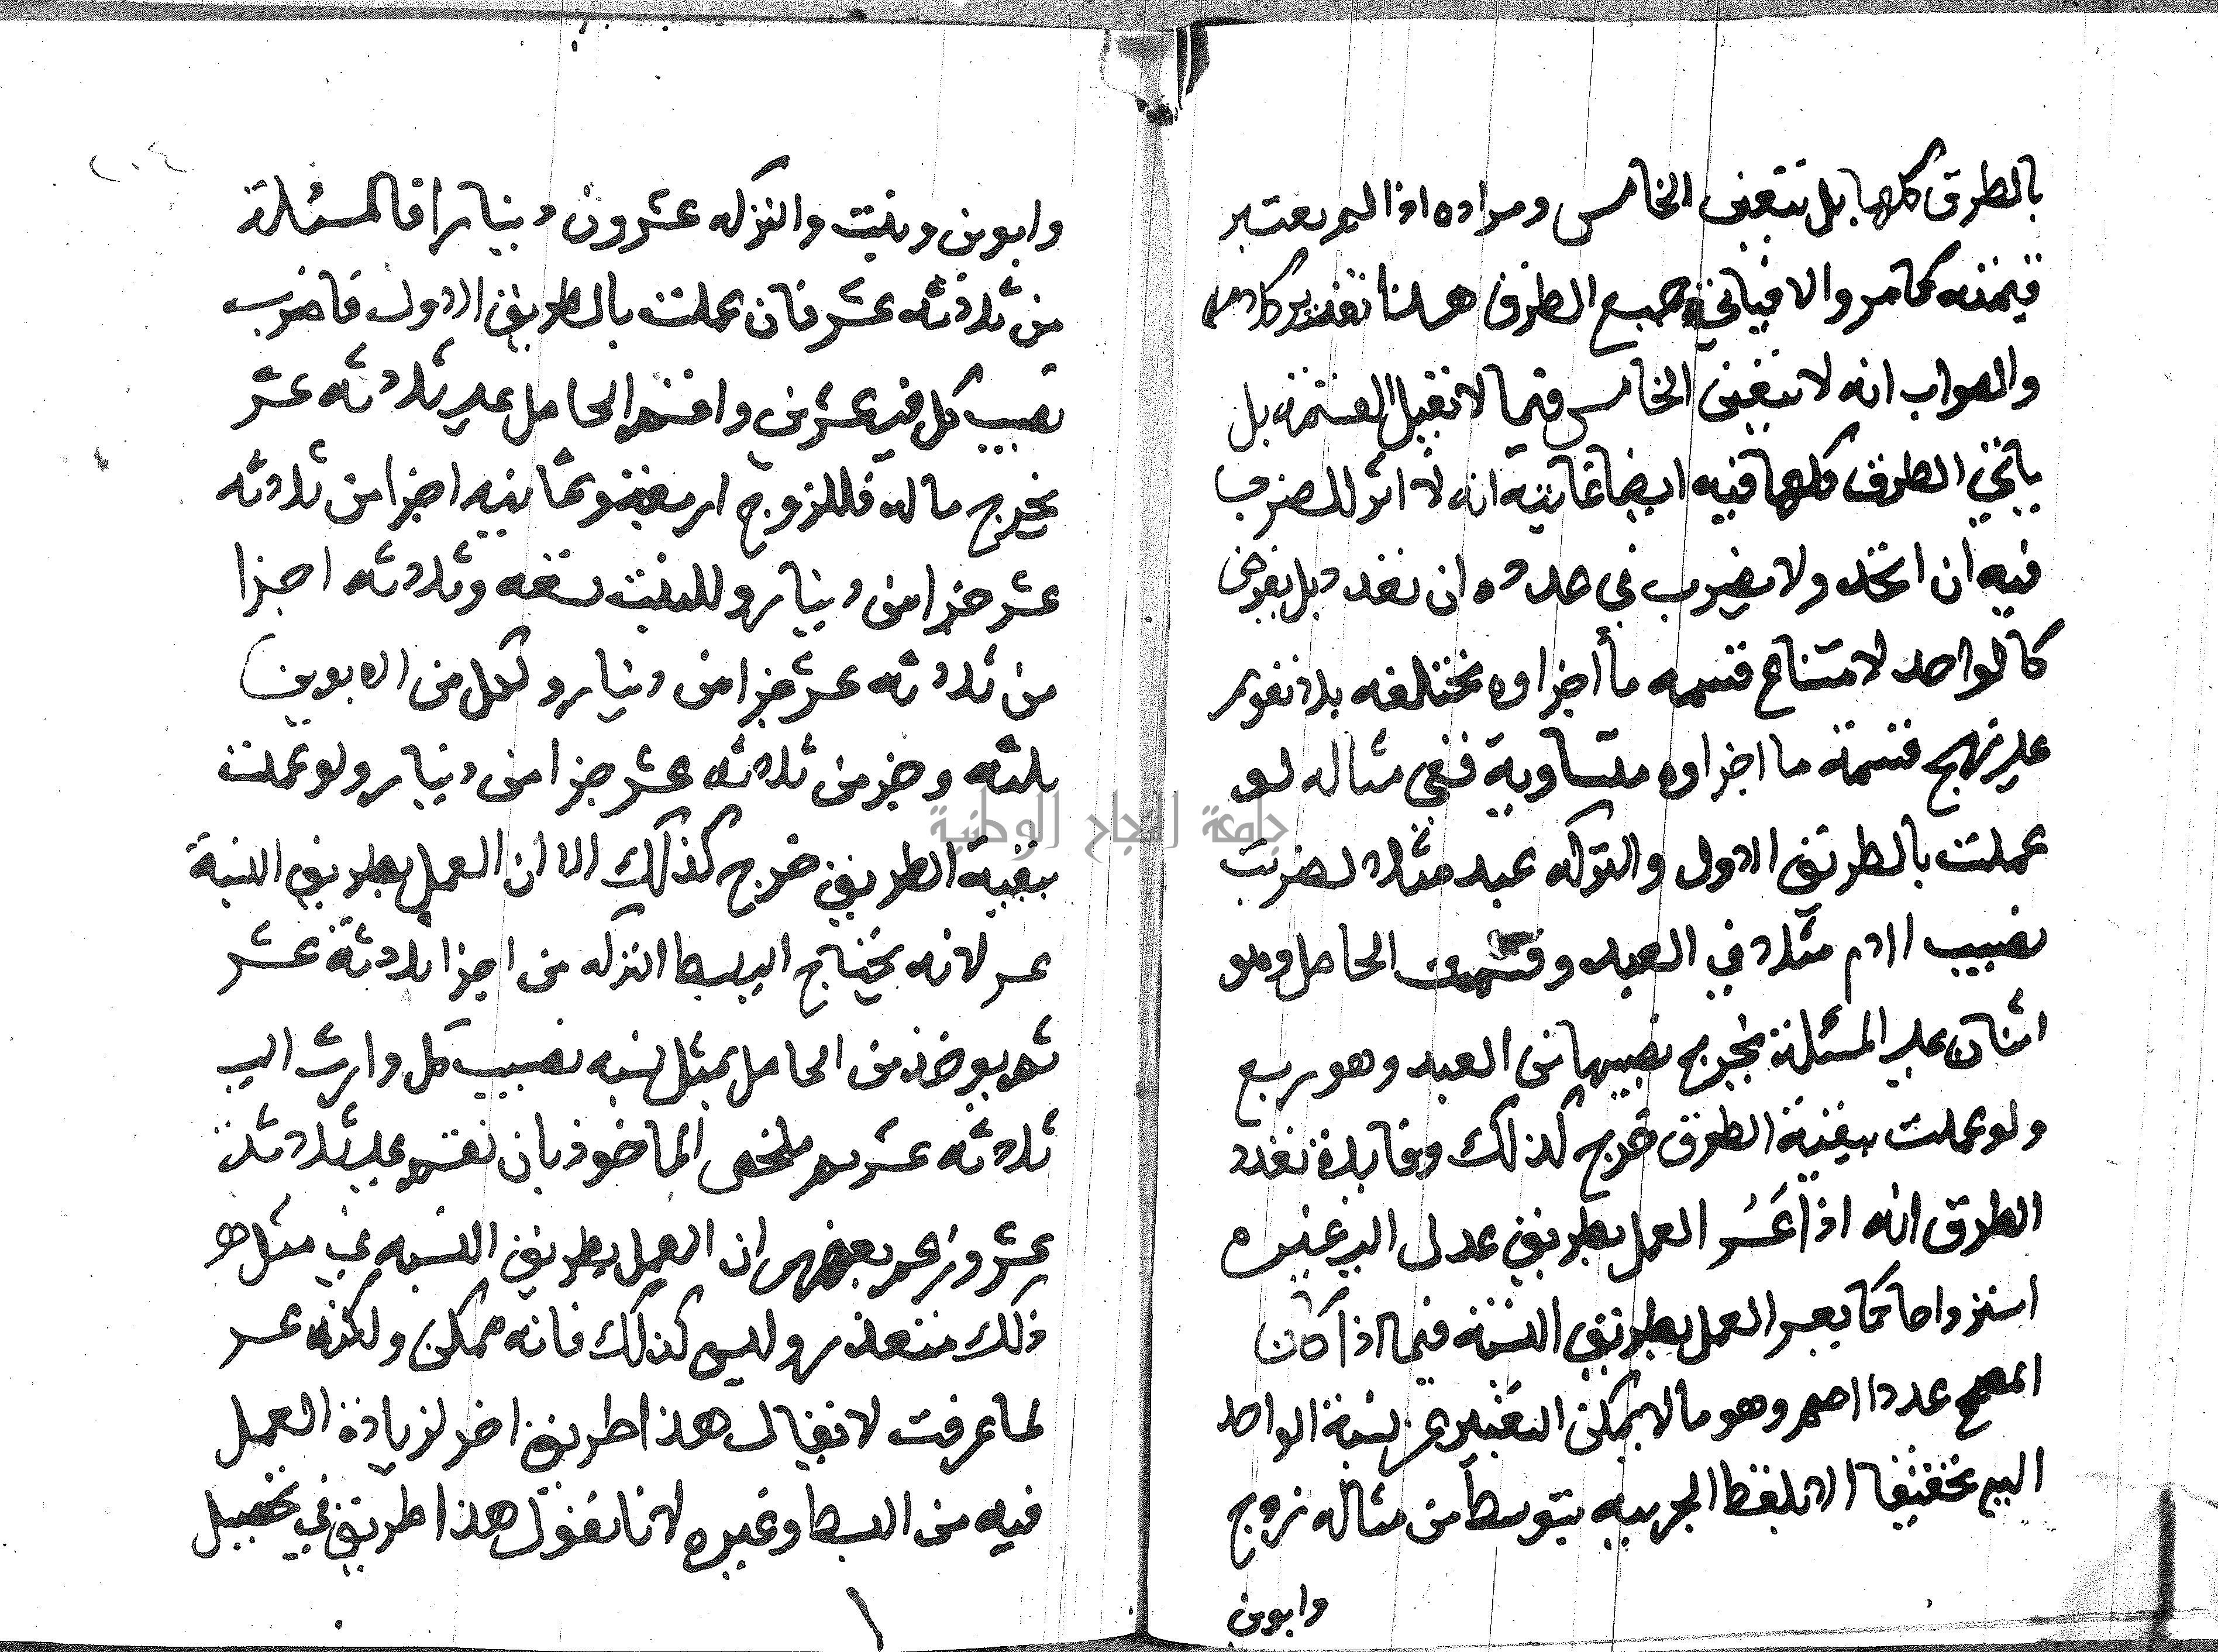 بالطرق كلها بل يتعين الخامس ومراده اذا لم يعتبر
قيمته كما مر والا فياتي جميع الطرق هنا تقدير كلامه
والصواب انه لا يتعين الخامس فيما لا تقبل القسمة بل
ياتي الطرق كلها فيه ايضا غايته انه لا اثر للضرب
فيه ان اتحد ولا يضرب في عدده ان تعدد بل يفرض
كالواحد لامتناع قسمه ما اجزاوه مختلفه بلا تقويم
علي نهج قسمة ما اجزاوه متساوية ففي مثاله لو
عملت بالطريق الاول والتركه عبد مثلا لضربت
نصيب الام مثلا في العبد وقسمت الحاصل وهو
اثنان علي المسئلة يخرج نصيبها من العبد وهو ربع
ولو عملت ببقية الطرق خرج كذلك وفايدة تعدد
الطرق انه اذا عَسُر العمل بطريق عدل الي غيره
استرواحا كما يعسر العمل بطريق النسبة فيما اذا كان
المصحح عددا اصم وهو ما لا يمكن التعبير عن نسبة الواحد
اليه تحقيقا الا بلفظ الجزييه يتوسط من مثاله زوج
وابوين
٢٠٤
وابوين وبنت والتركه عشرون دينارا فالمسئلة
من ثلاثه عشر فان عملت بالطريق الاول فاضرب
نصيب كل في عشرين واقسم الحاصل علي ثلاثه عشر
يخرج ماله فللزوج اربعة وثمانيه اجزا من ثلاثه
عشر جزا من دينار وللبنت تسعه وثلاثه اجزا
من ثلاثه عشر جزا من دينار ولكل من الابوين
ثلثه وجز من ثلاثه عشر جزا من دينار ولو عملت
ببقية الطريق خرج كذلك الا ان العمل بطريق النسبة
عسر لانه يحتاج الي بسط التركه من اجزا ثلاثة عشر
ثم يوخذ من الحاصل بمثل نسبه نصيب كل وارث الي
ثلاثه عشر ثم ملخص الماخوذ بان تقسم علي ثلاثة
عشر وزعم بعضهم ان العمل بطريق النسبه في مثل
ذلك متعذر وليس كذلك فانه ممكن ولكنه عسر
لما عرفت لا يقال هذا طريق اخر لزيادة العمل
فيه من البسط وغيره لانا نقول هذا طريق في تحصيل
جامعة النجاح الوطنية